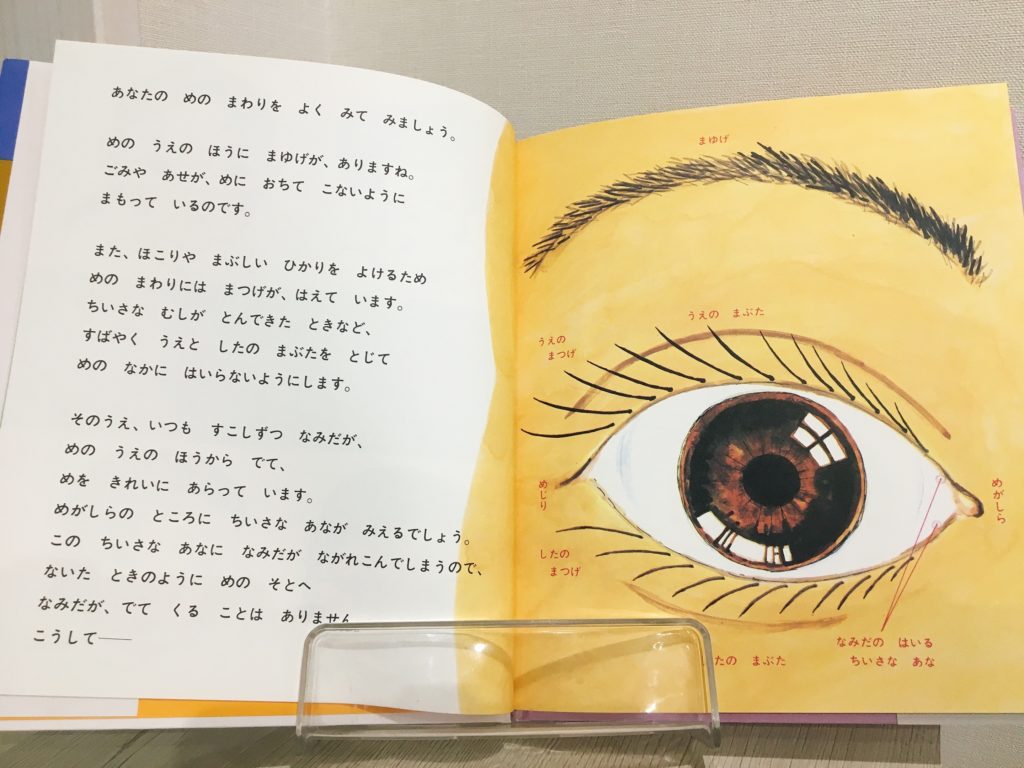 あなたの めの まわりを よく みて みましょう。
めの うえの ほうに まゆげが、ありますね。
ごみや あせが、めに おちて こないように
まもって いるのです。
また、ほこりや まぶしい ひかりを よけるため
めの まわりには まつげが、はえて います。
ちいさな むしが とんできた ときなど、
すばやく うえと したの まぶたを とじて
めの なかに はいらないようにします。
そのうえ、いつも すこしずつ なみだが、
めの うえの ほうから でて、
めを きれいに あらって います。
めがしらの ところに ちいさな あなが みえるでしょう。
この ちいさな あなに なみだが ながれこんでしまうので、
ないた ときのように めの そとへ
なみだが、でて くる ことは ありません
こうして——
まゆげ
うえの まぶた
うえの
まつげ
めじり
めがしら
したの
まつげ
なみだの はいる
ちいさな あな
たの まぶた